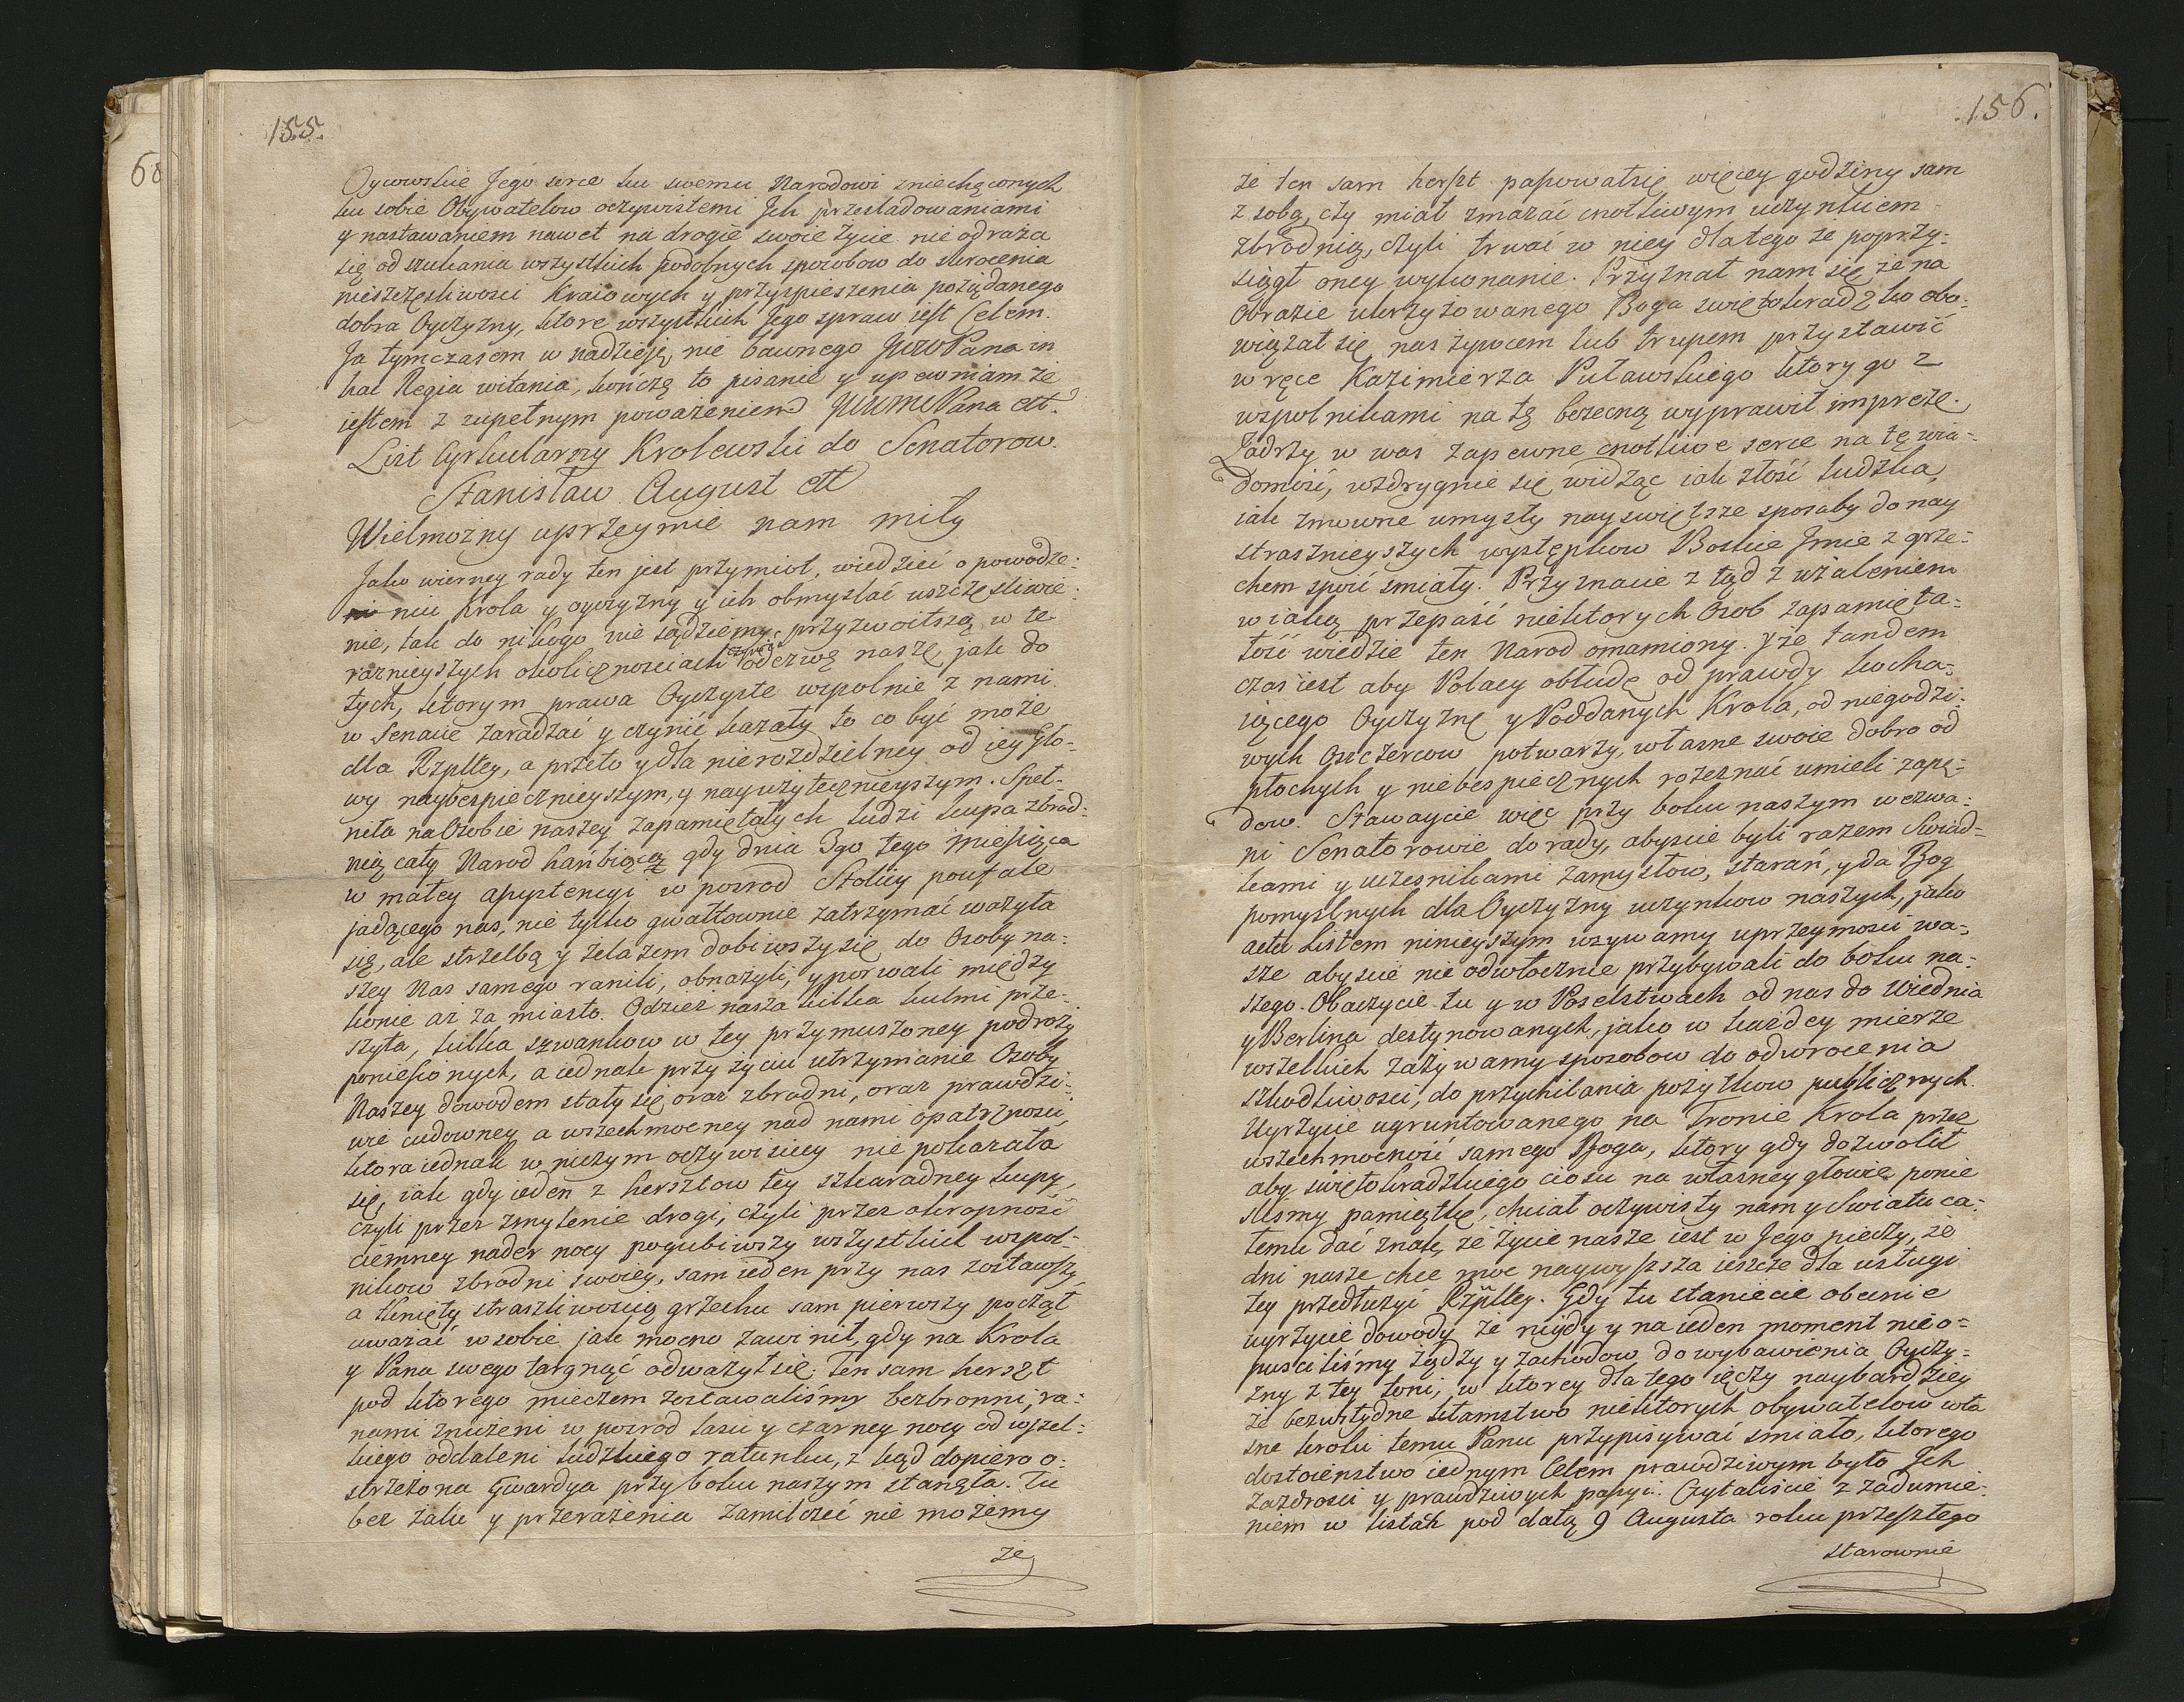 155.
68
Oycowskie Jego serce ku swemu Narodowi zniechęconych
ku sobie Obywatelow oczywistemi Ich prześladowaniami
y nastawaniem nawet na drogie swoie życie nie odraża
się od szukania wszystkich podobnych sposobow do skrocenia
nieszczęsliwosci Kraiowych y przyspieszenia pożądanego
dobra Oyczyzny, ktore wszystkich Jego spraw iest Celem.
Ja tymczasem w nadzieję nie dawnego JWWPana in
hac Regia witania, kończę to pisanie y upewniam że
iestem z zupełnym poważeniem JWWMPana ett.
List Cyrkularny Krolewski do Senatorow.
Stanisław August ett
Wielmozny uprzeymie nam miły
Jako wierney rady ten jest przymiot, wiedzieć o powodze:
niu Krola y oyczyzny y ich obmyslać uszczęsliwie:
nie, tak do nikogo nie sądziemy przyzwoitszą w te
raznieyszych okolicznosciach czynić odezwę naszę, jak do
tych, ktorym prawa Oyczyste wspolnie z nami
w Senacie zaradzać y czynić kazały to co być może
dla Rzpltey, a przeto y dla nierozdzielney od iey Gło-
wy naybespiecznieyszym, y nayużytecznieyszym. Speł-
niła na Osobie naszey zapamiętałych ludzi kupa zbrod:
nią cały Narod hańbiącą gdy dnia 3go tego Miesiąca
w małey assystencyi w posrod Stolicy poufale
jadącego nas, nie tylko gwałtownie zatrzymać ważyła
się, ale strzelbą y żelazem dobiwszy się do Osoby na:
szey Nas samego ranili, obnażyli, y porwali między
konie aż za miasto. Odzież nasza kilka kulmi prze-
szyta, kilka szwankow w tey przymuszoney podroży
poniesionych, a iednak przy życiu utrzymanie Osoby
Naszey dowodem stały się oraz zbrodni, oraz prawdzi:
wie cudowney a wszechmocney nad nami opatrznosci,
ktora iednak w niczym oczywisciey nie pokazała
się, iak gdy ieden z hersztow tey szkaradney kupy,
czyli przez zmylenie drogi, czyli przez okropność
ciemney nader nocy pogubiwszy wszystkich wspol-
nikow zbrodni swoiey, sam ieden przy nas zostawszy
a tknięty straszliwością grzechu sam pierwszy począł
uważać w sobie jak mocno zawinił, gdy na Krola
y Pana swego targnąć odważył się. Ten sam herszt
pod ktorego mieczem zostawaliśmy bezbronni, ra:
nami znużeni w posrod lasu y czarney nocy od wszel-
kiego oddaleni ludzkiego ratunku, z kąd dopiero o:
strzeżona Gwardya przy boku naszym stanęła. Tu
bez żalu y przerażenia zamilczeć nie możemy
że
156.
że ten sam herszt pasował się więcey godziny sam
z sobą, czy miał zmazać cnotliwym uczynkiem
zbrodnią, czyli trwać w niey dlatego że poprzy:
siągł oney wykonanie. Przyznał nam się że na
Obrazie ukrzyżowanego Boga swiętokradzko obo:
wiązał się nas żywcem lub trupem przystawić
w ręce Kazimierza Puławskiego ktory go z
wspolnikami na tę bezecną wyprawił imprezę.
Zadrży w was zapewne cnotliwe serce na tę wia:
domość, wzdrygnie się widząc iak złość ludzka,
iak zmowne umysły nayswiętsze sposoby do nay
strasznieyszych występkow Boskie Imie z grze:
chem spoić smiały. Przyznacie z tąd z użaleniem
w iaką przepaść niektorych Osob zapamięta:
łość wiedzie ten Narod omamiony. Y że tandem
czas iest aby Polacy obłudę od prawdy kocha:
iącego Oyczyznę y Poddanych Krola, od niegodzi:
wych Oszczercow potwarzy, własne swoie dobro od
płochych y niebespiecznych rozeznać umieli zapę:
dow. Stawaycie więc przy boku naszym wezwa:
ni Senatorowie do rady, abyscie byli razem Swiad=
kami y uczesnikami zamysłow, starań, y da Bog
pomyslnych dla Oyczyzny uczynkow naszych, jako
actu Listem ninieyszym wzywamy uprzeymosci wa:
sze abyscie nie odwłocznie przybywali do boku na:
szego. Obaczycie tu y w Poselstwach od nas do Wiednia
y Berlina destynowanych, jako w każdey mierze
wszelkich zażywamy sposobow do odwrocenia
szkodliwosci, do przychilania pożytkow publicznych.
Uyrzycie ugruntowanego na Tronie Krola przez
wszechmocność samego Boga, ktory gdy dozwolił
aby świętokradzkiego ciosu na własney głowie ponie
sliśmy pamiątkę, chciał oczywisty nam y Swiatu ca:
łemu dać znak, że życie nasze iest w Jego pieczy, że
dni nasze chce moc naywyższa ieszcze dla usługi
tey przedłużyć Rzpltey. Gdy tu staniecie obecnie
uyrzycie dowody że nigdy y na ieden moment nie o=
puscilismy żądzy y zachodow do wybawienia Oyczy=
zny z tey toni, w ktorey dla tego ięczy naybardziey
że bezwstydne kłamstwo niektorych obywatelow wła
sne kroki temu Panu przypisywać smiało, ktorego
dostoieństwo iednym Celem prawdziwym było Ich
zazdrosci y prawdziwych passyi. Czytaliscie z zadumie:
niem w listach pod datą 9 Augusta roku przeszłego
starownie